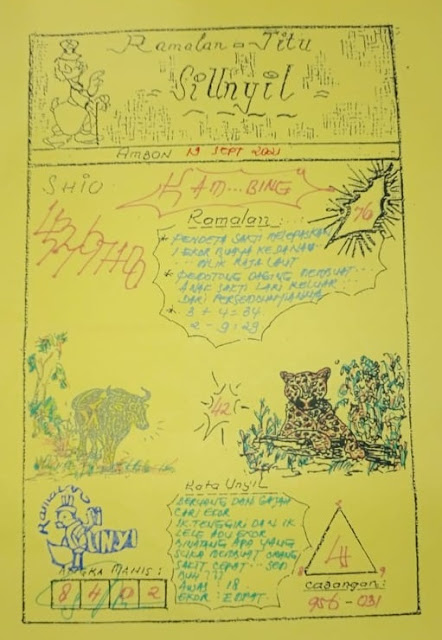 Ramalan = Titu
Si Unyil
AMBON 19 SEPT 2021
SHIO
KAM...BING
76
Ramalan:
* PENDETA SAKTI MELEPASKAN
1 EKOR BUAYA
MILIK RAJA LAUT
* PEMOTONG DAGING MEMBUAT
ANAK SAKTI LARI KELUAR
DARI PERSEMBUNYIANNYA
* 3 + 4 = 34
2 - 9 = 29
42
Kata Unyil
BERUANG DAN GAJAH
CARI EKOR
IK TENGGIRI DAN IK
LELE ADU EKOR
BINATANG APA YANG
SUKA MEMBUAT ORANG
SAKIT CEPAT... SEM
BUH ???
AWAS : 18
EKOR : EMPAT
Ramalan
Si UNYIL
ANGKA MANIS :
8 4 0 2
2
4
8 9
CADANGAN :
956 - 031